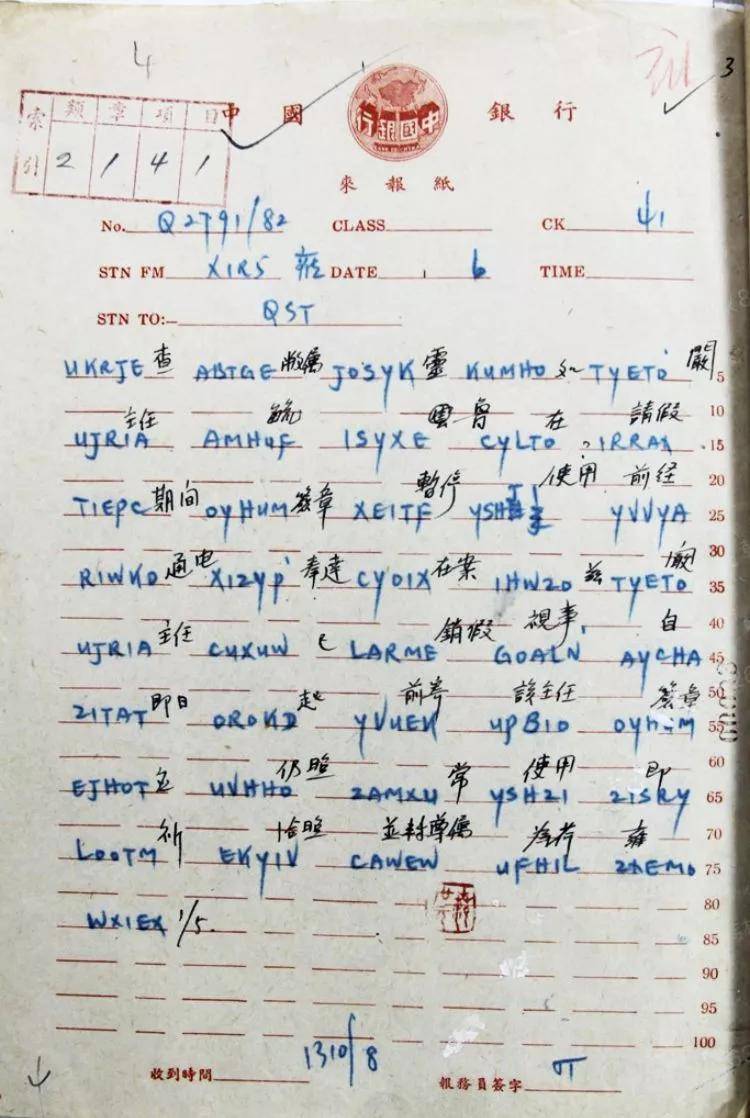 4
3
索引 類 章 項 目
2 1 4 1
中國 銀行
行銀國中
來報紙
No. Q2791/82 CLASS CK 41
STN FM XIRS DATE 6 TIME
STN TO:— QST
查 敝屬 靈 嚴
UKRJE ABTGE JOSYK KUMHO TYETO 5
10
主任 雲 魯 在 請假
UJRIA AMHUF ISYXE CYLTO IRRAX 15
20
期间 簽章 暫停 使用 前経
TIEPC OYHUM XEITF YSH YVVYA 25
30
通电 奉達 在案 茲
RIWKO XIZYP CYOIX IHWZO TYETO 35
40
主任 銷假 視事, 自
UJRIA CUXUW LARME GOALN AYCHA 45
50
即日 起 前寄 該主任 簽章
ZITAT OROKD YVUEK UPBIO OYHUM 55
60
仍照 常 使用 即
EJHOT UVHHO ZAMXU YSHZI ZISRY 65
70
祈 洽照 並轉尊屬 為荷 雍
LOOTM EKYIV CAWEW UFHIL ZAEMO 75
80
WXIEX 1/5. 85
90
95
100
收到時間 1310/8 報務員簽字